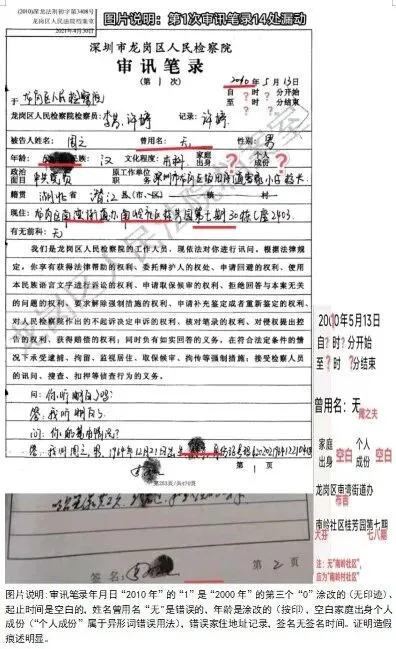 图片说明：第1次审讯笔录14处漏动
(2010)深龙法刑初字第3408号
龙岗区人民法院档案室
2021年4月30日
深圳市龙岗区人民检察院
审讯笔录
（第 1 次） 2010年5月13日
于 龙岗区人民检察院 自 ? 时 ? 分开始
至 ? 时 ? 分结束
龙岗区人民检察院检察员： 李 许婷 记录： 许婷
被告人姓名： 周 曾用名： 无 性别： 男
年龄： 民族： 汉 文化程度： 本科 家庭出身 ? 个人成份 ?
政治面目 中共党员 原工作单位职务 深圳市龙岗区
籍贯 湖北省 潜江 县 ? 乡 ? 村
现住： 龙岗区南湾街道办南岭社区桂芳园第七期30栋C座2403
有无前科： 无
我们是龙岗区人民检察院的工作人员，现依法对你进行讯问。根据法律规
定，你享有获得法律帮助的权利、委托辩护人的权处、申请回避的权利、使用
本民族语言文字进行诉讼的权利、申请取保候审的权利、拒绝回答与本案无关
的问题的权利、要求解除强制措施的权利、申请补充鉴定或者重新鉴定的权利、
对人民检察院作出的不起诉决定申诉的权利、核对笔录的权利、对侵权提出控
告的权利、获得赔偿的权利；同时负有如实回答的义务，在符合法定条件的情
况下承受逮捕、拘留、监视居住、取保候审、拘传等强制措施；接受检察人员
的讯问、搜查、扣押等侦查行为的义务。
问：你听明白了吗？
答：我听明白了
问：你的基本情况？
答：我叫周 1964年12月21日
第253页/共470页
1
签名：
第 2 页
2010年5月13日
自?时?分开始
至?时?分结束
曾用名：无
周之夫
家庭出身 空白 个人成份 空白
龙岗区南湾街道办
布吉
南岭社区桂芳园第七期
大芬 七八期
注：无"南岭村社区"，
应为"南岭村社区"
图片说明：审讯笔录年月日“2010年”的“1”是“2000年”的第三个“0”涂改的（无印迹）、
起止时间是空白的，姓名曾用名“无”是错误的，年龄是涂改的（按印）、空白家庭出身个人
成份（“个人成份”属于异形词错误用法），错误家住地址记录，签名无签名时间。证明造假
痕迹明显。